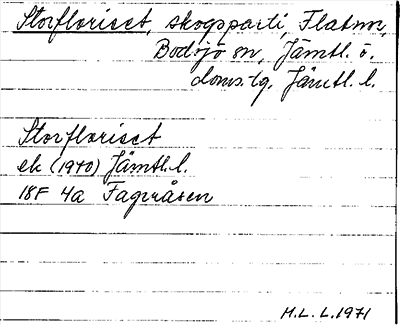 Storflæriset, skogsparti, Flatnor,
Bodsjö sn, Jämtl. ö.
doms.lg. Jämtl. l.
Storflæriset
ek (1940) Jämtl.l.
18F 4a Fagråsen
M.L. L. 1971